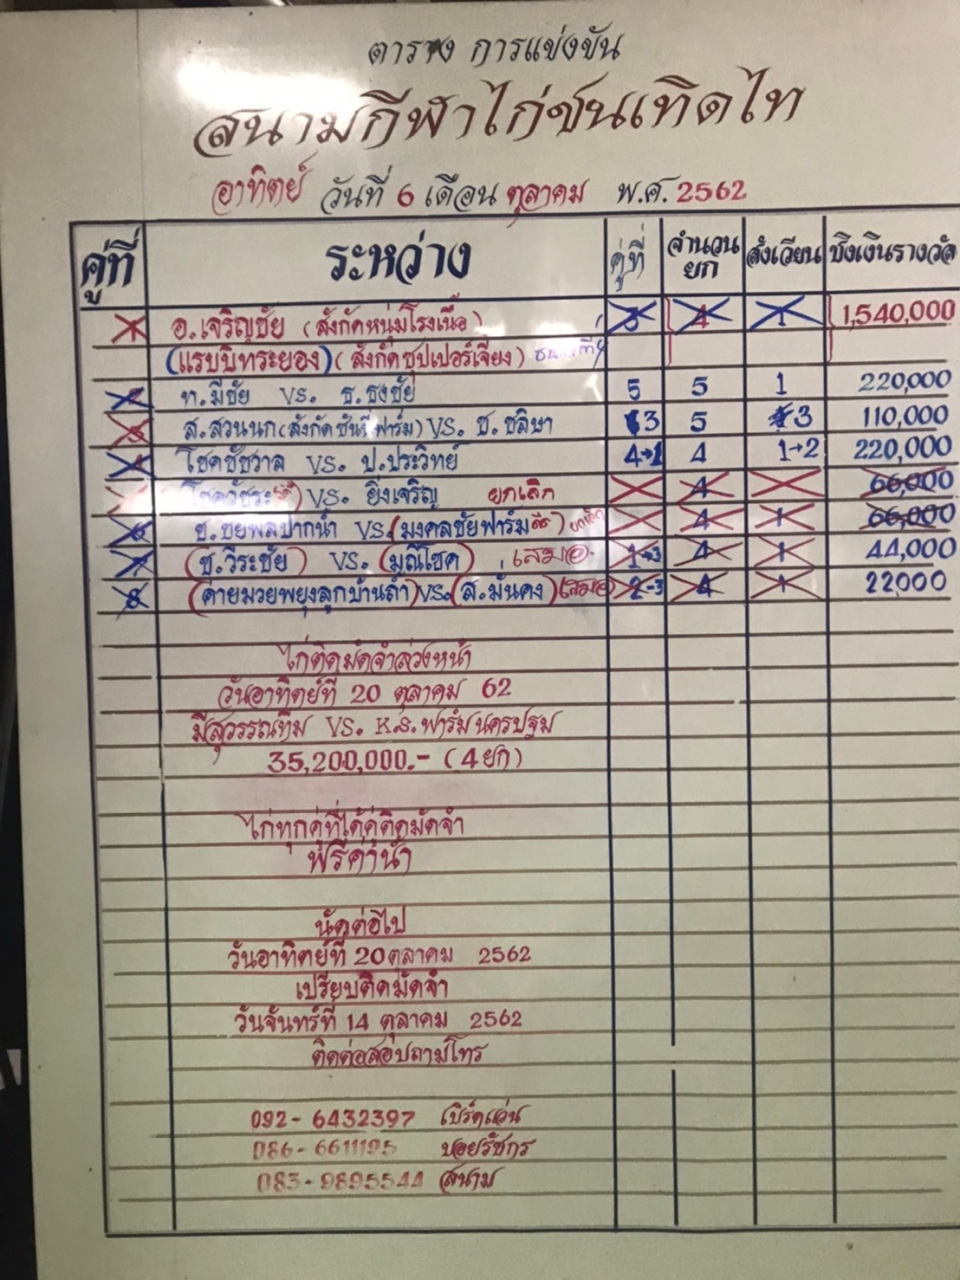 ตาราง การแข่งขัน
สนามกีฬาไก่ชนเทิดไท
อาทิตย์ วันที่ 6 เดือน ตุลาคม พ.ศ. 2562
คู่ที่ ระหว่าง คู่ที่ จำนวนยก สังเวียน ชิงเงินรางวัล
1 อ.เจริญชัย (สังกัดหนุ่มโรงเนื้อ) 3 4 1 1,540,000
(แรบบิทระยอง) (สังกัดซุปเปอร์เจี๊ยง)
2 ท.มีชัย VS. ธ.ธงชัย 5 5 1 220,000
3 ส.สวนนก (สังกัดซันนี่ฟาร์ม) VS. ช.ชลิษา 3 5 3 110,000
4 โชคชัชวาล VS. ป.ประวิทย์ 4→1 4 1→2 220,000
VS. ยิ่งเจริญ ยกเลิก 4 66,000
6 ช.ชยพลปากน้ำ VS. (มงคลชัยฟาร์ม) ยกเลิก 4 1 66,000
7 (ช.วีระชัย) VS. (มณีโชค) เสมอ 1→3 4 1 44,000
8 (ค่ายมวยพยุงลูกบ้านถ้ำ) VS. (ส.มั่นคง) (เสมอ) 2→3 4 1 22000
ไก่ติดมัดจำล่วงหน้า
วันอาทิตย์ที่ 20 ตุลาคม 62
มีสุวรรณทีม VS. K.S.ฟาร์มนครปฐม
35,200,000.- (4ยก)
ไก่ทุกคู่ที่ได้คู่ติดมัดจำ
ฟรีค่าน้ำ
นัดต่อไป
วันอาทิตย์ที่ 20 ตุลาคม 2562
เปรียบติดมัดจำ
วันจันทร์ที่ 14 ตุลาคม 2562
ติดต่อสอบถามโทร
092-6432397 เบิร์ดแว่น
086-6611195 บอยรัชกร
083-9895544 สนาม